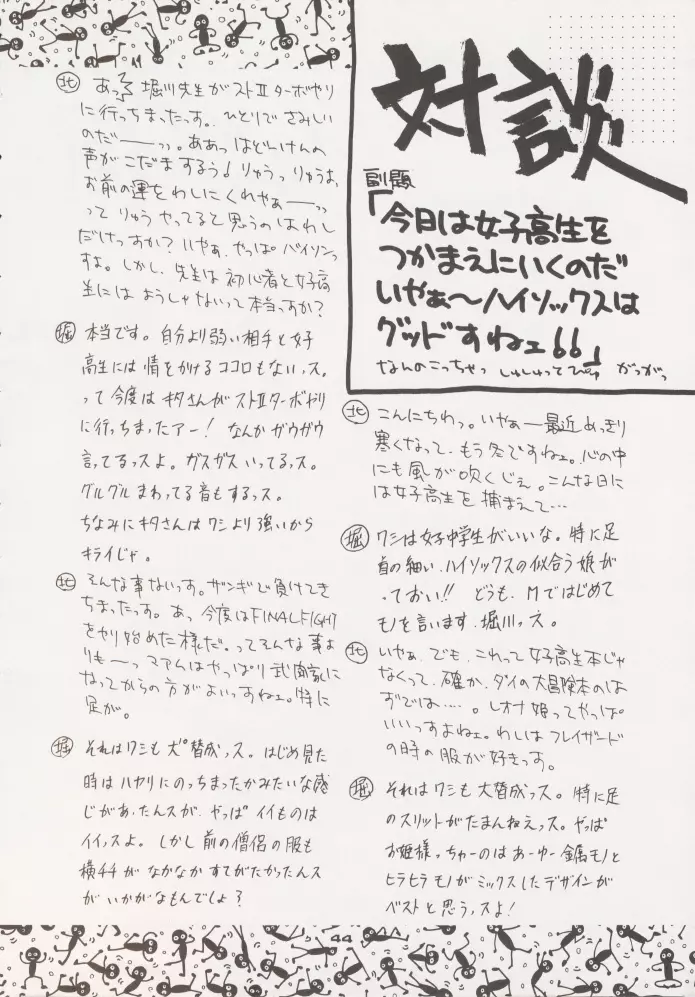 対談
副題
「今日は女子高生を
つかまえにいくのだ
いやぁ〜ハイソックスは
グッドすねェ66」
なんのこっちゃっ しゅしゅってぴゅ がつがっ
北 こんにちわっ。いやぁー最近めっきり
寒くなって、もう冬ですねェ。心の中
にも風が吹くじぇ。こんな日に
は女子高生を捕まえて…
堀 ワシは女子中学生がいいな。特に足
首の細い、ハイソックスの似合う娘が
っておい!! どうも、Mではじめて
モノを言います、堀川っス。
北 いやぁ、でも、これって女子高生本じゃ
なくって、確か、ダイの大冒険本のは
ずでは……。レオナ姫ってやっぱ
いいっすよねェ。わしはフレイザード
の時の服が好きっす。
堀 それはワシも大賛成っス。特に足
のスリットがたまんねえっス。やっぱ
お姫様っちゅーのはあーゆー金属モノと
ヒラヒラモノがミックスしたデザインが
ベストと思うっスよ!
北 あっ 堀川先生がストⅡターボやり
に行っちまったっす。ひとりでさみしい
のだーーっっ。ああっはどーけんの
声がこだまするぅ! りゅうっりゅうは
お前の運をわしにくれやぁーーっっ
ってりゅうやってると思うのはわし
だけっすか? いやぁ、やっぱバイソンっ
すよ。しかし、先生は初心者と女子高
生にはようしゃないって本当っすか?
堀 本当です。自分より弱い相手と女子
高生には情をかけるココロもないっス。
って今度はキタさんがストⅡターボやり
に行っちまったアー! なんかガウガウ
言ってるっスよ。ガスガスいってるっス。
グルグルまわってる音もするっス。
ちなみにキタさんはワシより強いから
キライじゃ。
北 そんな事ないっす。ザンギで負けてき
ちまったっす。あっ今度はFINALFIGHT
をやり始めた様だ。ってそんな事よ
りもーーっマアムはやっぱり武闘家に
なってからの方がよいっすねェ。特に
足が。
堀 それはワシも大賛成っス。はじめ見た
時はハヤリにのっちまったかみたいな感
じがあったんスが、やっぱイイものは
イイっスよ。しかし前の僧侶の服も
横チチがなかなかすてがたかったんス
がいかがなもんでしょ?
44